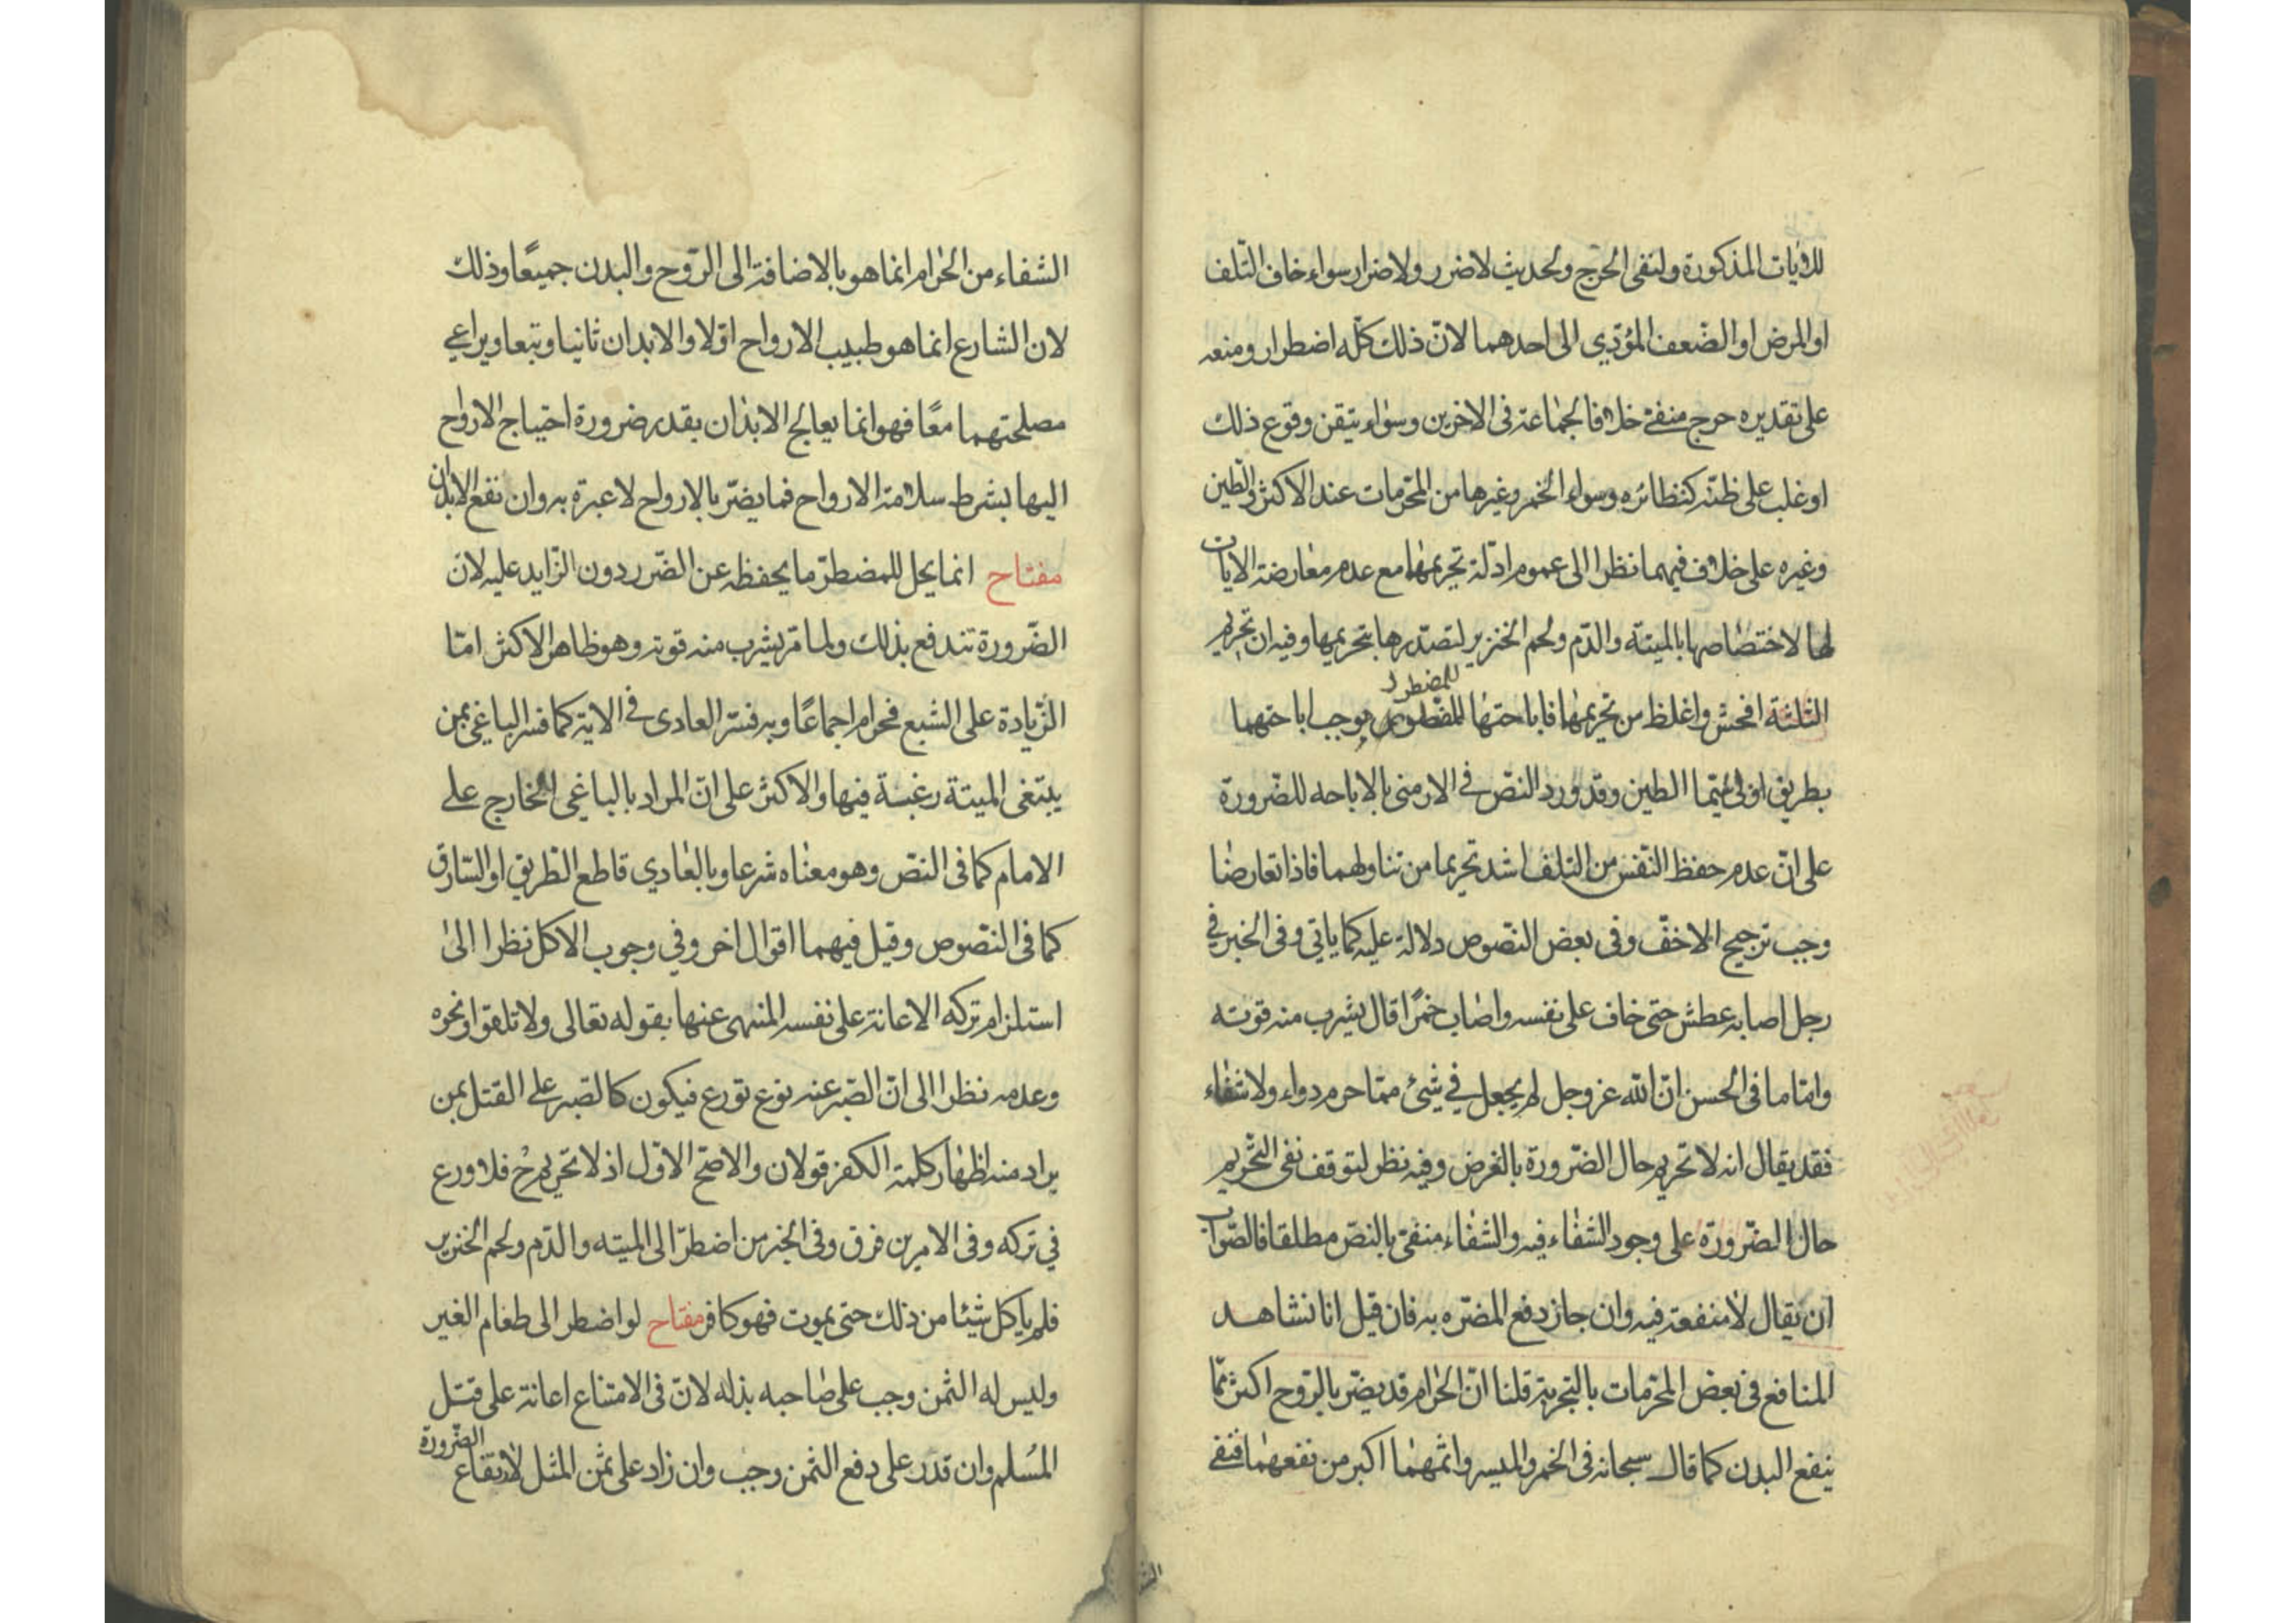 للآيات المذكورة ولنفى الحرج ولحديث لاضرر ولاضرار سواء خاف التّلف
او المرض او الضّعف المؤدّي الى احدهما لانّ ذلك كلّه اضطرار ومنعه
على تقديره حرج منفىّ خلافا لجماعة فى الاخرين وسواء تيقن وقوع ذلك
او غلب على ظنّه كنظائره وسواء الخمر وغيرها من المحرّمات عند الاكثر والطّين
وغيره على خلاف فيهما نظرا الى عموم ادلّة تحريمهما مع عدم معارضة الايات
لها لاختصاصها بالميتة والدّم ولحم الخنزير لتصدّرها بتحريمها وفيه ان تحريم
الثلثة افحش واغلظ من تحريمهما فاباحتها للمضطر يوجب اباحتهما
بطريق اولى سيّما الطين وقد ورد النصّ فى الارمنى بالاباحه للضّرورة
على انّ عدم حفظ النّفس من التلف اشد تحريما من تناولهما فاذا تعارضا
وجب ترجيح الاخفّ وفى بعض النّصوص دلالة عليه كما ياتي وفى الخبر في
رجل اصابه عطش حتى خاف على نفسه واصاب خمرًا قال يشرب منه قوته
وامّا ما فى الحسن انّ الله عز وجل لم يجعل في شئ ممّا حرم دواء ولا شفاء
فقد يقال انه لا تحريم حال الضّرورة بالغرض وفيه نظر لتوقف نفى التّحريم
حال الضّرورة على وجود الشفاء فيه والشفاء منفىّ بالنصّ مطلقا فالصّواب
ان يقال لا منفعة فيه وان جاز دفع المضرّه به فان قيل انا نشاهد
المنافع فى بعض المحرّمات بالتجربة قلنا انّ الحرام قد يضرّ بالرّوح اكثر ممّا
ينفع البدن كما قال سبحانه فى الخمر والميسر واثمهما اكبر من نفعهما فنفى
الشفاء من الحرام انما هو بالاضافة الى الرّوح والبدن جميعًا وذلك
لان الشارع انما هو طبيب الارواح اوّلا والابدان ثانيا وتبعا ويراعي
مصلحتهما معًا فهو انما يعالج الابدان بقدر ضرورة احتياج الارواح
اليها بشرط سلامة الارواح فما يضرّ بالارواح لاعبرة به وان نفع الابدان
مفتاح انما يحل للمضطرّ ما يحفظه عن الضّرر دون الزّايد عليه لان
الضّرورة تندفع بذلك ولما مرّ يشرب منه قوته وهو ظاهر الاكثر امّا
الزّيادة على الشبع فحرام اجماعًا وبه فسّر العادى فى الاية كما فسر الباغى بمن
يبتغى الميتة رغبة فيها والاكثر على انّ المراد بالباغى الخارج على
الامام كما فى النصّ وهو معناه شرعا وبالعادي قاطع الطّريق او السّارق
كما فى النّصوص وقيل فيهما اقوال اخر وفي وجوب الاكل نظرا الى
استلزام تركه الاعانة على نفسه المنهى عنها بقوله تعالى ولا تلقوا ونحوه
وعدمه نظرا الى انّ الصّبر عنه نوع تورع فيكون كالصّبر على القتل بمن
يراد منه اظهار كلمة الكفر قولان والاصحّ الاوّل اذ لا تحريم ح فلا ورع
في تركه وفى الامرين فرق وفى الخبر من اضطرّ الى الميته والدّم ولحم الخنزير
فلم ياكل شيئا من ذلك حتى يموت فهو كافر مفتاح لو اضطر الى طعام الغير
وليس له الثمن وجب على صاحبه بذله لانّ فى الامتناع اعانة على قتل
المُسلم وان قدر على دفع الثمن وجب وان زاد على ثمن المثل لارتفاع الضّرورة